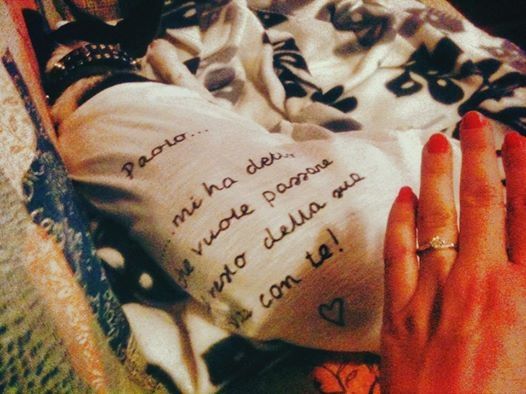 Paolo...
...mi ha det..
che vuole passare
resto della sua
con te!